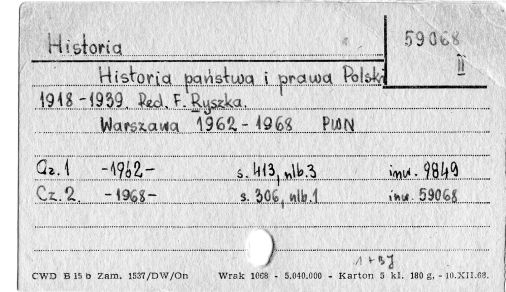 Historia
59068
II
Historia państwa i prawa Polski
1918-1939. Red. F. Ryszka.
Warszawa 1962-1968 PWN
Cz. 1 -1962- s. 413, nlb. 3 inw. 9849
Cz. 2 -1968- s. 306, nlb. 1 inw. 59068
1+BJ
CWD B 15 b Zam. 1537/DW/On Wrak 1068 - 5.040.000 - Karton 5 kl. 180 g. - 10.XII.68.